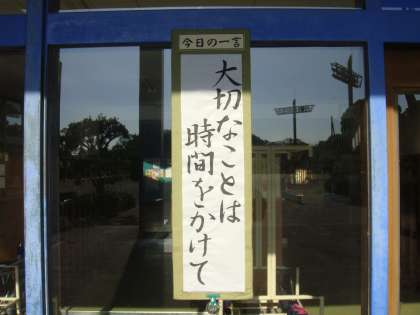 今日の一言
大切なことは
時間をかけて